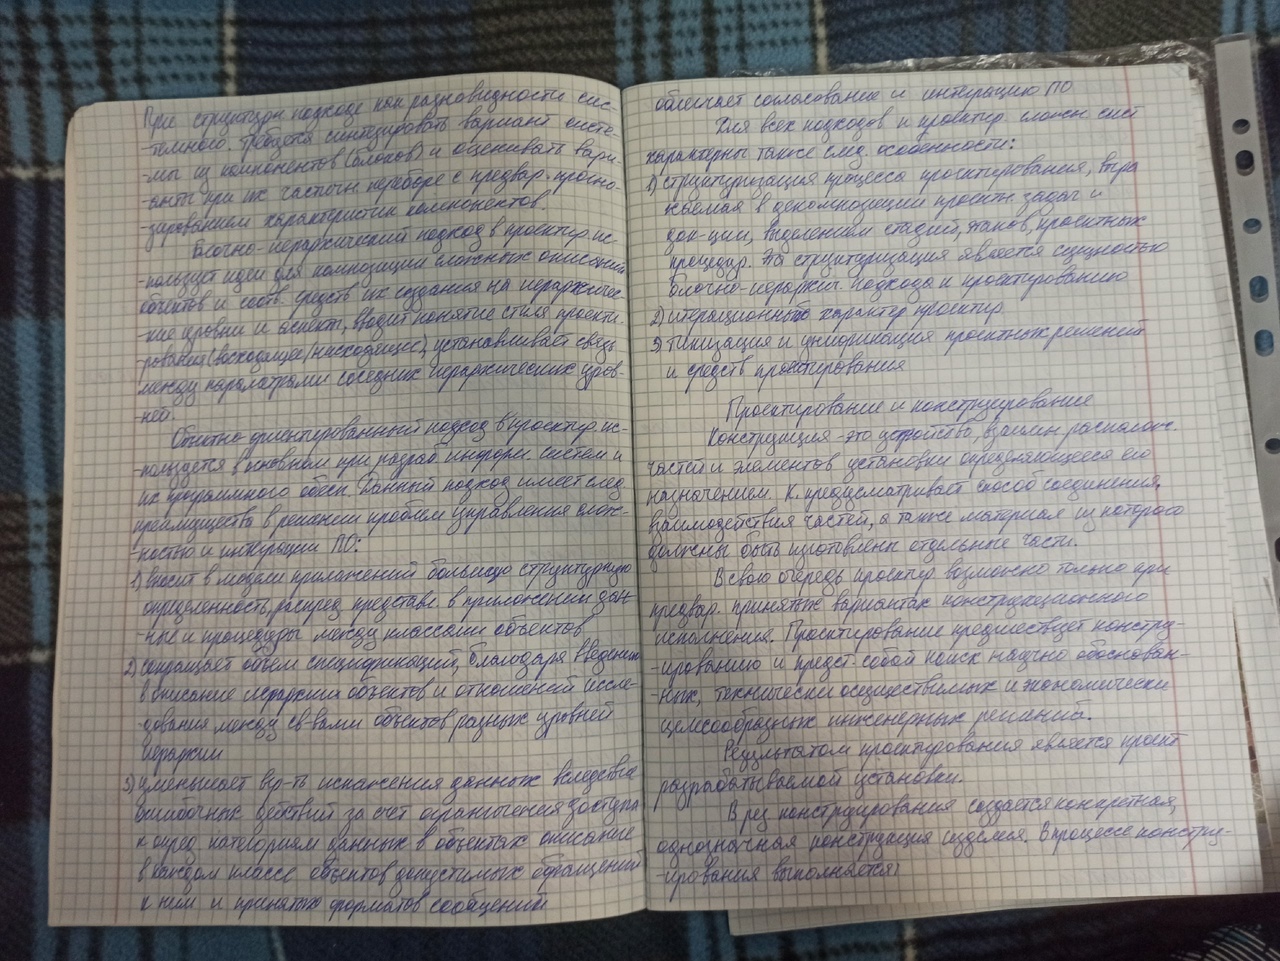 При структурн подходе как разновидности сис-
-темного. требуется синтезировать вариант систе-
-мы из компонентов (блоков) и оценивать вари-
-анты при их частичн переборе с предвар. прогно-
-зированием характеристик компонентов.
Блочно-иерархический подход в проектир. ис-
-пользует идеи для композиции сложных описаний
объектов и соотв. средств их создания на иерархичес-
-кие уровни и аспекты, вводит понятие стиля проекти-
-рования (восходящее/нисходящее), устанавливает связь
между параметрами соседних иерархических уров-
-ней.
Объектно-ориентированный подход в проектир. ис-
-пользуется в основном при разраб информ. систем и
их программного обесп. Данный подход имеет след
преимущества в решении проблем управления слож-
-ностью и интеграции ПО:
1) вносит в модели приложений большую структурную
определенность, распред представл. в приложении дан-
-ные и процедуры между классами объектов
2) сокращает объем спецификаций, благодаря введению
в описание иерархии объектов и отношений иссле-
-дования между св-вами объектов разных уровней
иерархии
3) уменьшает вер-ть искажения данных вследствие
ошибочных действий за счет ограничения доступа
к опред. категориям данных в объектах описание
в каждом классе объектов допустимых обращений
к ним и принятых форматов сообщений
облегчает согласование и интеграцию ПО
Для всех подходов и проектир. сложн. сист
характерны также след. особенности:
1) структуризация процесса проектирования, выра
жаемая в декомпозиции проектн. задач и
док-ции, выделением стадий, этапов, проектных
процедур. Эта структуризация является сущностью
блочно-иерархич. подхода и проектированию
2) итерационный характер проектир.
3) типизация и унификация проектных решений
и средств проектирования
Проектирование и конструирование
Конструкция - это устройство, взаимн располож.
частей и элементов установки определяющееся его
назначением. К. предусматривает способ соединения,
взаимодействия частей, а также материал из которого
должны быть изготовлены отдельные части.
В свою очередь проектир возможно только при
предвар. принятых вариантах конструкционного
исполнения. Проектирование предшествует констру-
-ированию и предст. собой поиск научно обоснован-
-ных, технически осуществимых и экономически
целесообразных инженерных решений.
Результатом проектирования является проект
разрабатываемой установки.
В рез конструирования создается конкретная,
однозначная конструкция изделия. В процессе констру-
-ирования выполняется: